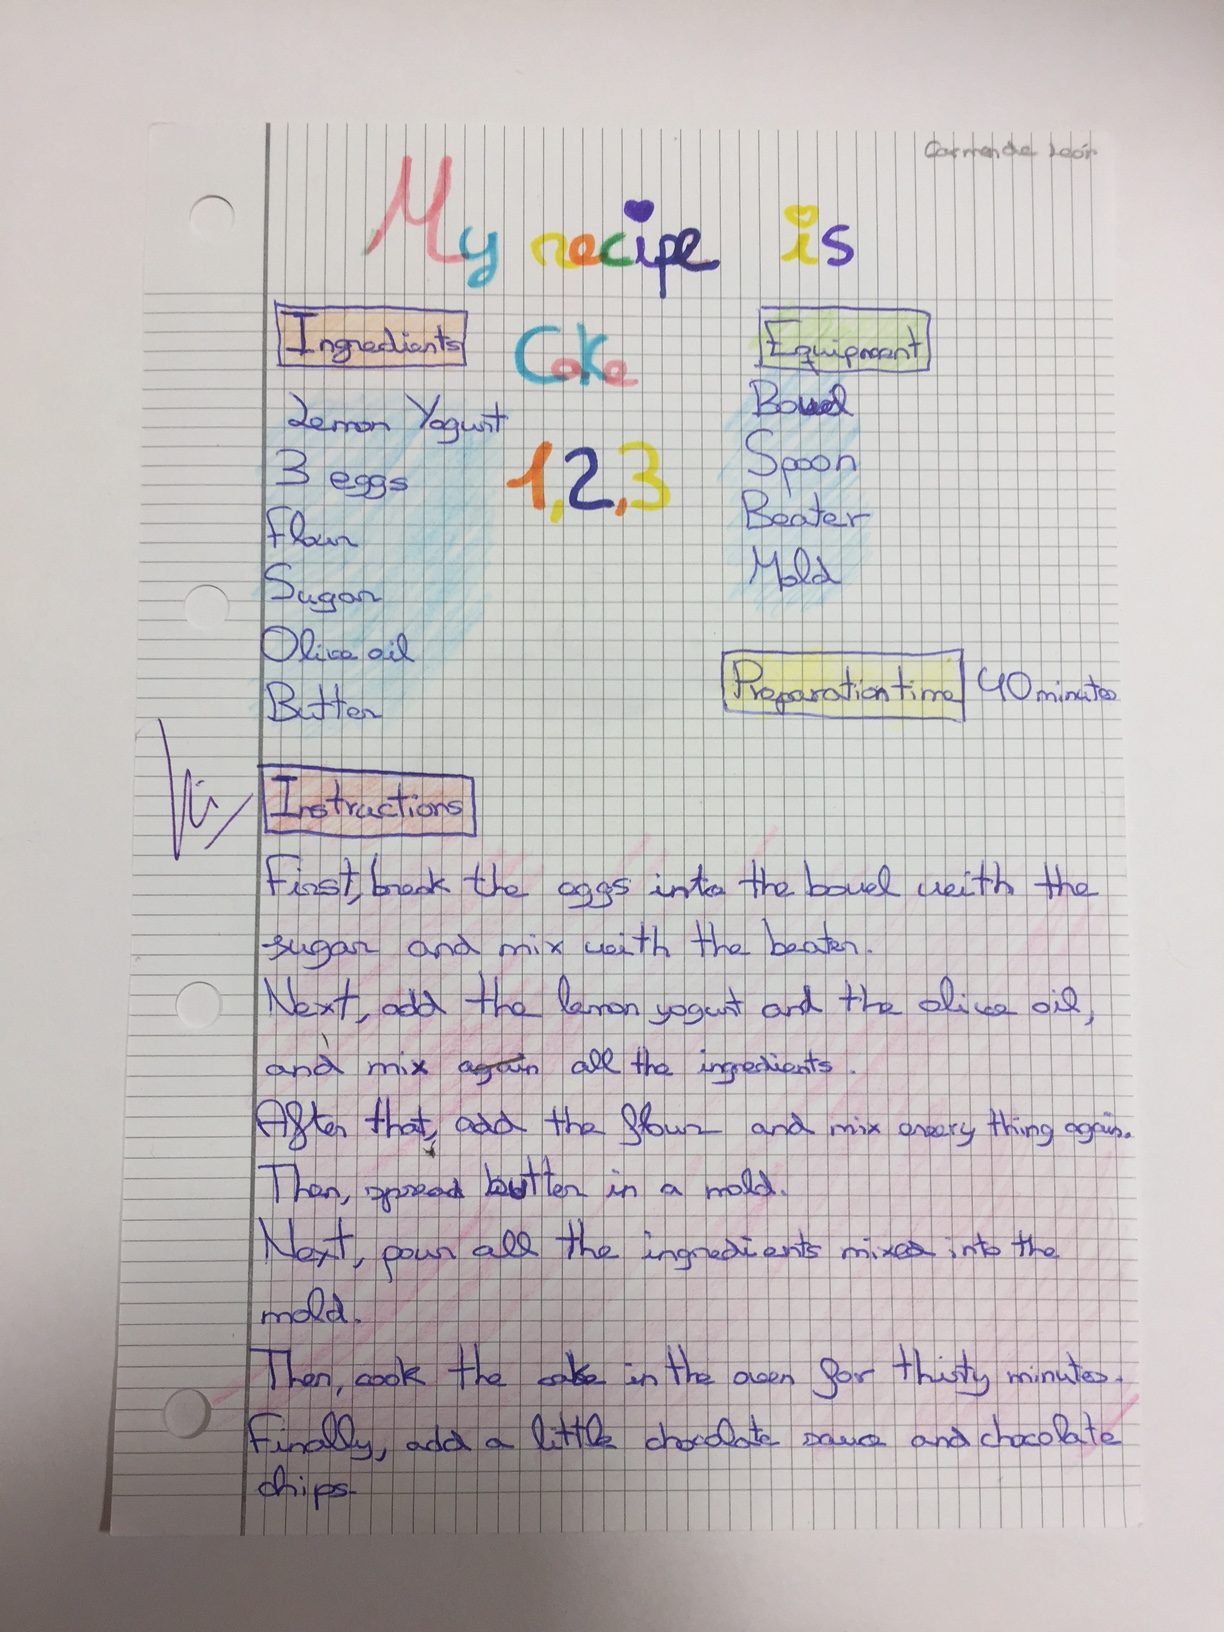 Carmen de León
My recipe is
Cake
1,2,3
Ingredients
Lemon Yogurt
3 eggs
Flour
Sugar
Olive oil
Butter
Equipment
Bowel
Spoon
Beater
Mold
Preparation time 40 minutes
Instructions
First, break the eggs into the bowel with the
sugar and mix with the beater.
Next, add the lemon yogurt and the olive oil,
and mix again all the ingredients.
After that, add the flour and mix every thing again.
Then, spread butter in a mold.
Next, pour all the ingredients mixed into the
mold.
Then, cook the cake in the oven for thirty minutes.
Finally, add a little chocolate sauce and chocolate
chips.